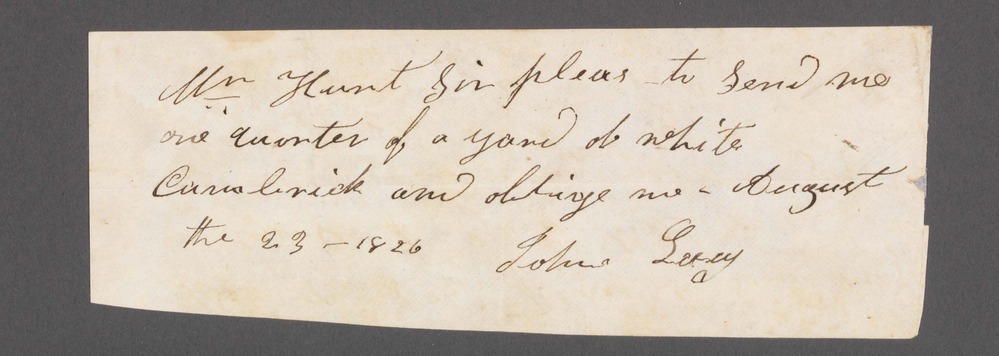 Mr Hunt Sir pleas to Send me
one quarter of a yard of white
Cambrick and oblinge me - August
the 23 - 1826 John